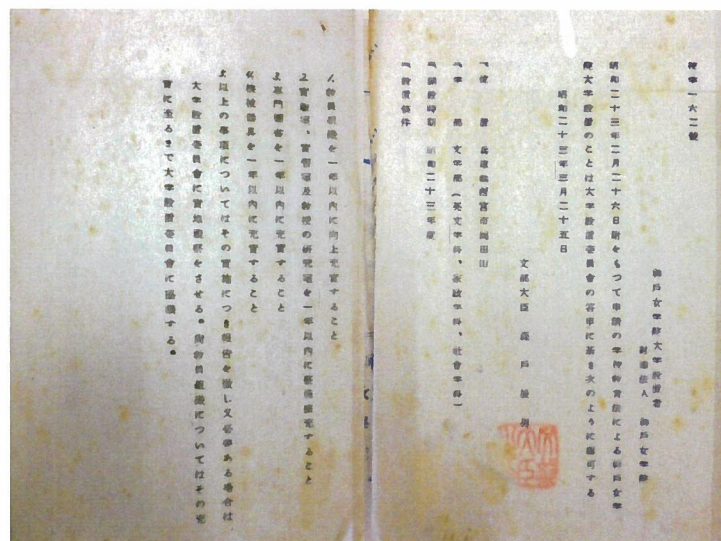 神戸女学院大学設置者
財団法人 神戸女学院
昭和二十三年二月二十六日附をもつて申請の学校教育法による神戸女学
院大学設置のことは大学設置委員会の答申に基き次のように認可する
昭和二十三年三月二十五日
文部大臣 森戸辰男
位 置 兵庫県西宮市岡田山
学 部 文学部(英文学科、家政学科、社会学科)
開設時期 昭和二十三年度
設置条件
1.教員組織を一年以内に向上充実すること
実験室、実習室及教授の研究室を一年以内に整備拡充すること
3.専門図書を一年以内に充実すること
4.機械器具を一年以内に充実すること
以上の事項についてはその実施につき報告を徴し又必要ある場合は
大学設置委員会に実地視察をさせる。尚教員組織についてはその充
実に至るまで大学設置委員会に協議する。